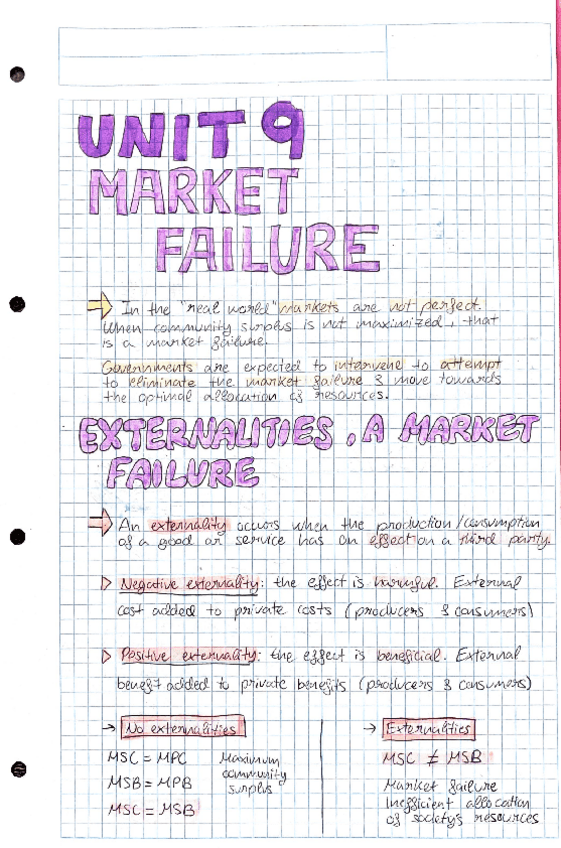 UNIT 9
MARKET
FAILURE
In the "real world" markets are not perfect.
When community surplus is not maximized, that
is a market failure.
Governments are expected to intervene to attempt
to eliminate the market failure & move towards
the optimal allocation of resources.
EXTERNALITIES. A MARKET
FAILURE
An externality occurs when the production/consumption
of a good or service has an effect on a third party.
Negative externality: the effect is harmful. External
cost added to private costs (producers & consumers)
Positive externality: the effect is beneficial. External
benefit added to private benefits (producers & consumers)
→ No externalities
MSC = MPC
MSB = MPB
MSC = MSB
Maximum
community
surplus
→ Externalities
MSC ≠ MSB
Market failure
Inefficient allocation
of society's resources